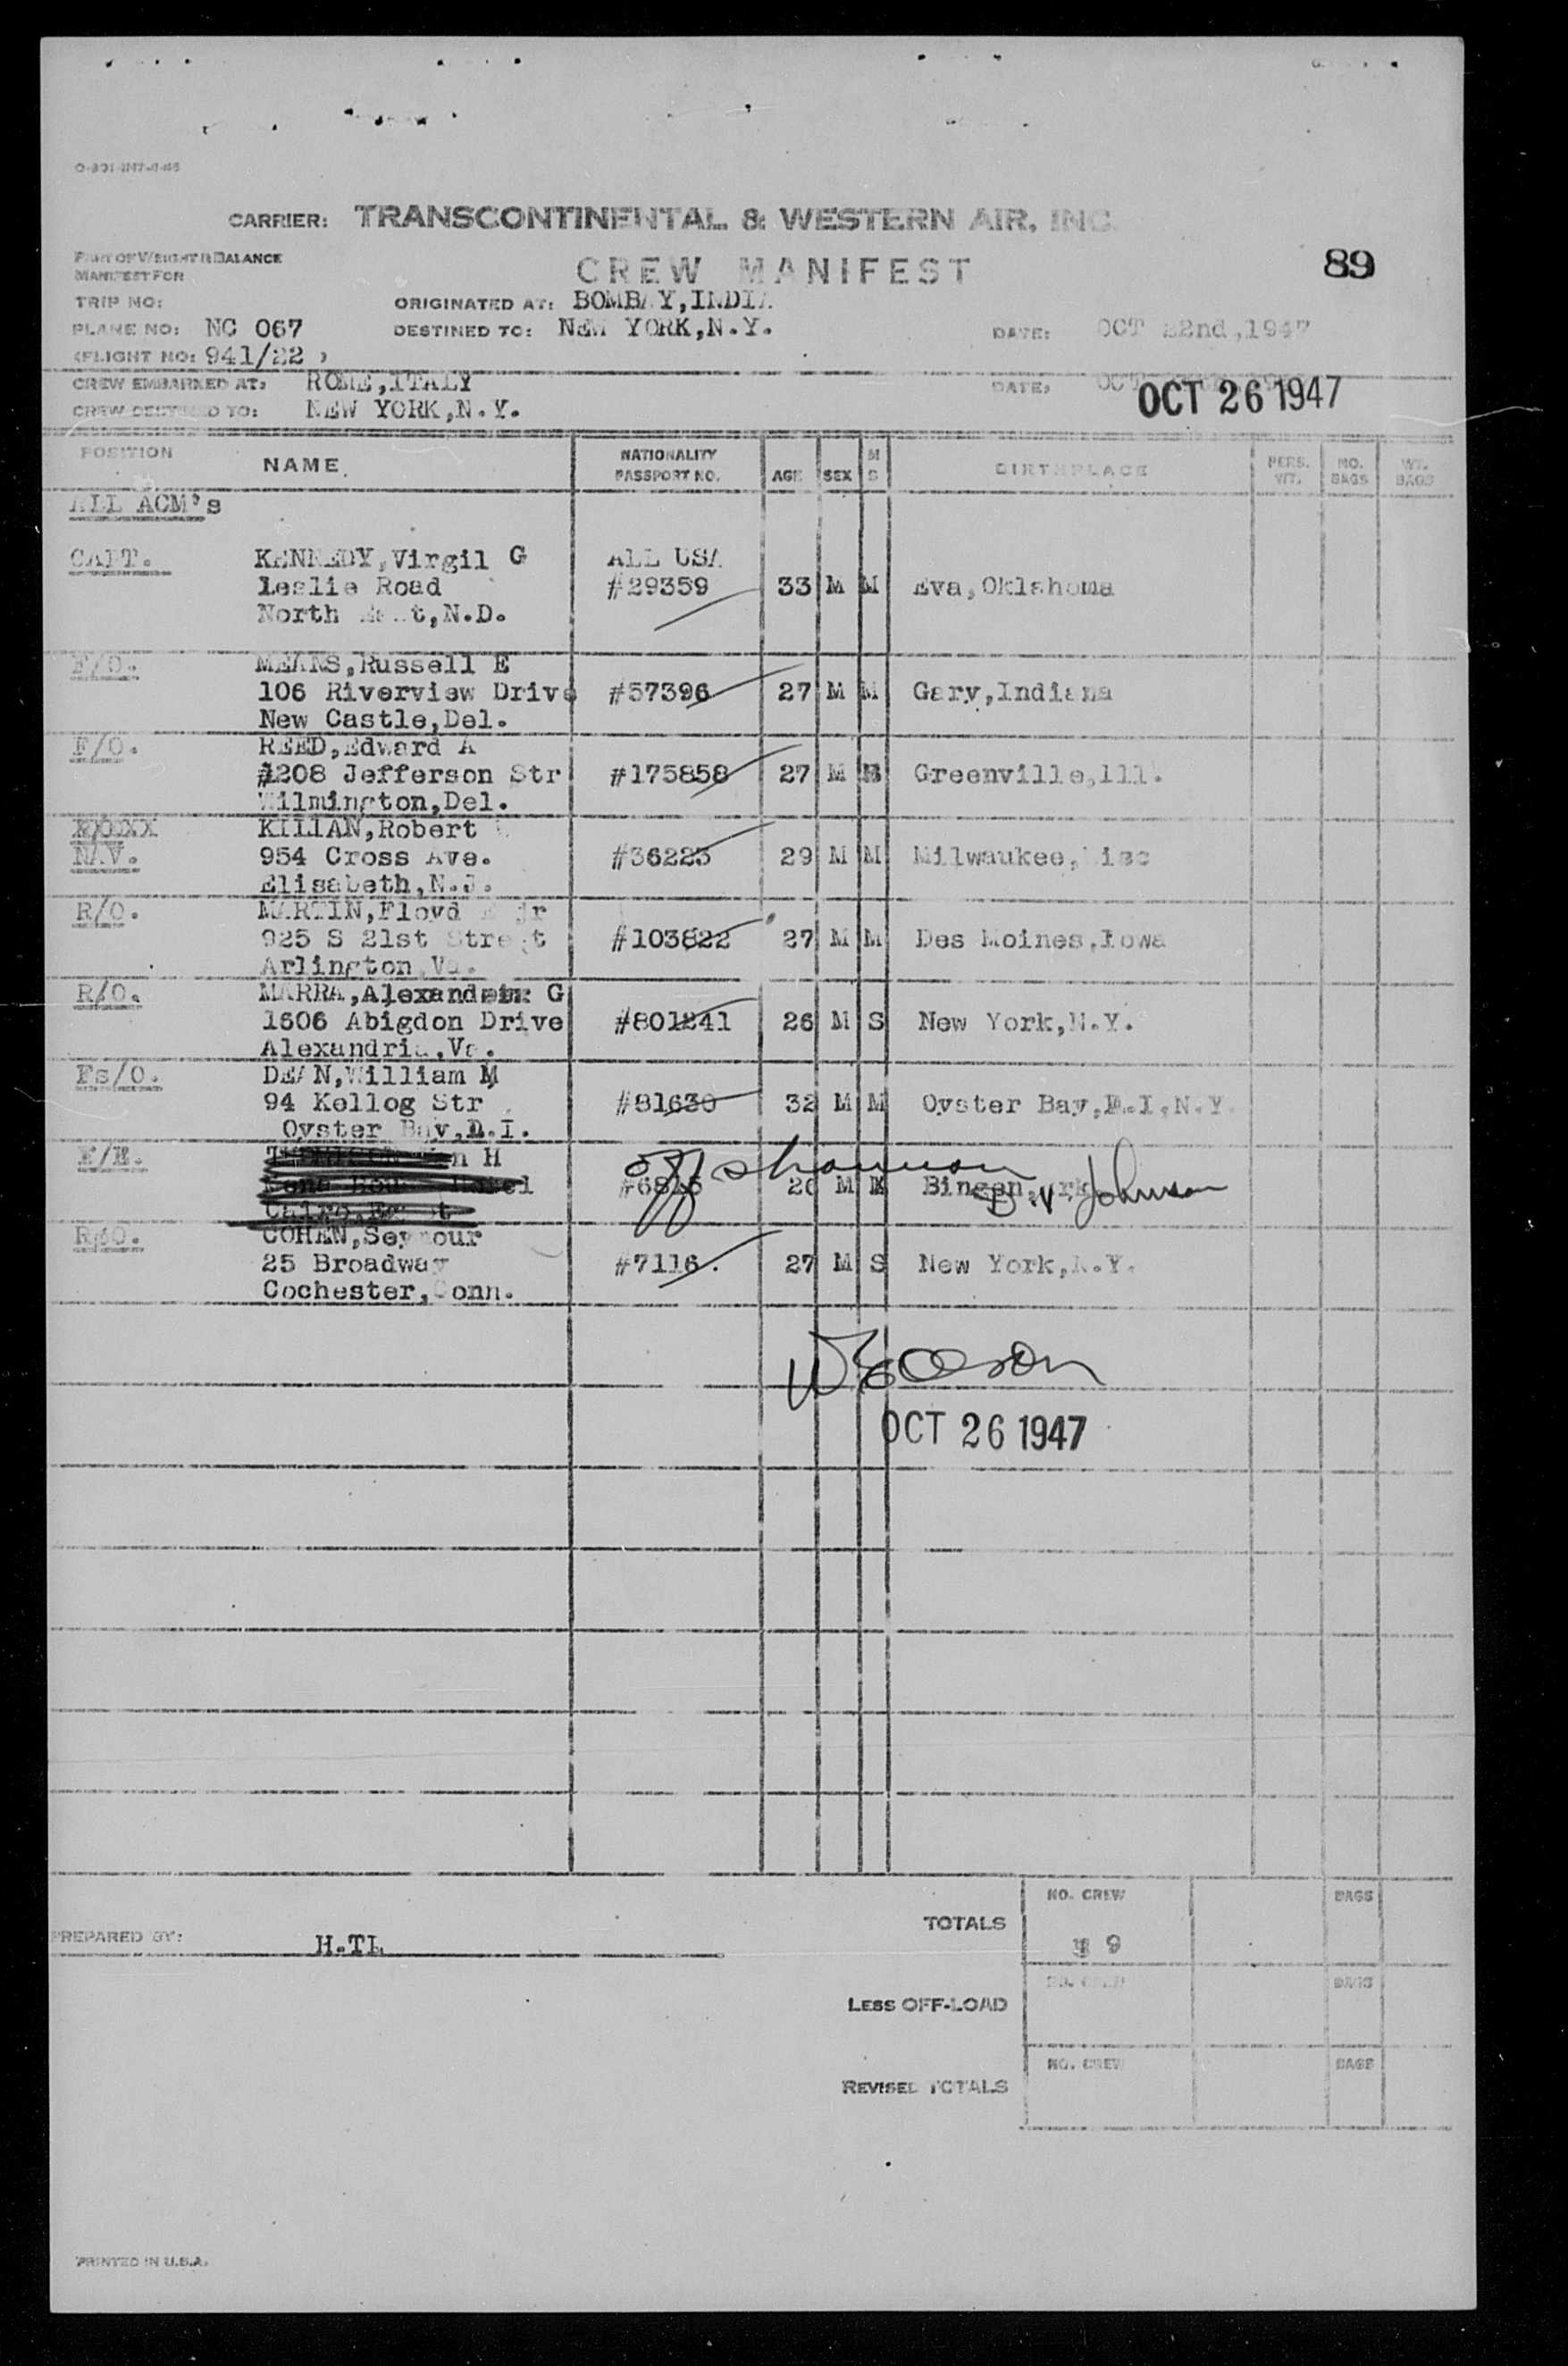 CARRIER: TRANSCONTINENTAL & WESTERN AIR, INC.
PART OF WEIGHT & BALANCE
MANIFEST FOR
CREW MANIFEST
89
TRIP NO:
ORIGINATED AT: BOMBAY, INDIA
PLANE NO: NC 067
DESTINED TO: NEW YORK, N.Y.
DATE: OCT 22nd, 1947
(FLIGHT NO: 941/22 )
CREW EMBARKED AT: ROME, ITALY
DATE: OCT
OCT 26 1947
CREW DESTINED TO: NEW YORK, N.Y.
POSITION NAME NATIONALITY PASSPORT NO. AGE SEX M S BIRTHPLACE PERS. WT. NO. BAGS WT. BAGS
ALL ACM's
CAPT. KENNEDY, Virgil G ALL USA
Leslie Road #29359 33 M M Eva, Oklahoma
North N.D.
F/O. MEANS, Russell E
106 Riverview Drive #57396 27 M M Gary, Indiana
New Castle, Del.
F/O. REED, Edward A
1208 Jefferson Str #175858 27 M Greenville, Ill.
Wilmington, Del.
KILIAN, Robert
NAV. 954 Cross Ave. #36225 29 M M Milwaukee, Wisc
Elisabeth, N.J.
R/O. MARTIN, Floyd Jr
925 S 21st Street #103822 27 M M Des Moines, Iowa
Arlington Va.
R/O. MARRA, Alexander G
1606 Abigdon Drive #801241 26 M S New York, N.Y.
Alexandria, Va.
Fs/O. DEAN, William M
94 Kellog Str #81630 32 M M Oyster Bay, L.I, N.Y.
Oyster Bay, L.I.
F/E. H
M Bingen, Ark
D.V. Johnson
COHEN, Seymour
25 Broadway #7116. 27 M S New York, N.Y.
Cochester, Conn.
OCT 26 1947
PREPARED BY: H.TL
TOTALS NO. CREW 9 BAGS
LESS OFF-LOAD NO. CREW BAGS
REVISED TOTALS NO. CREW BAGS
PRINTED IN U.S.A.